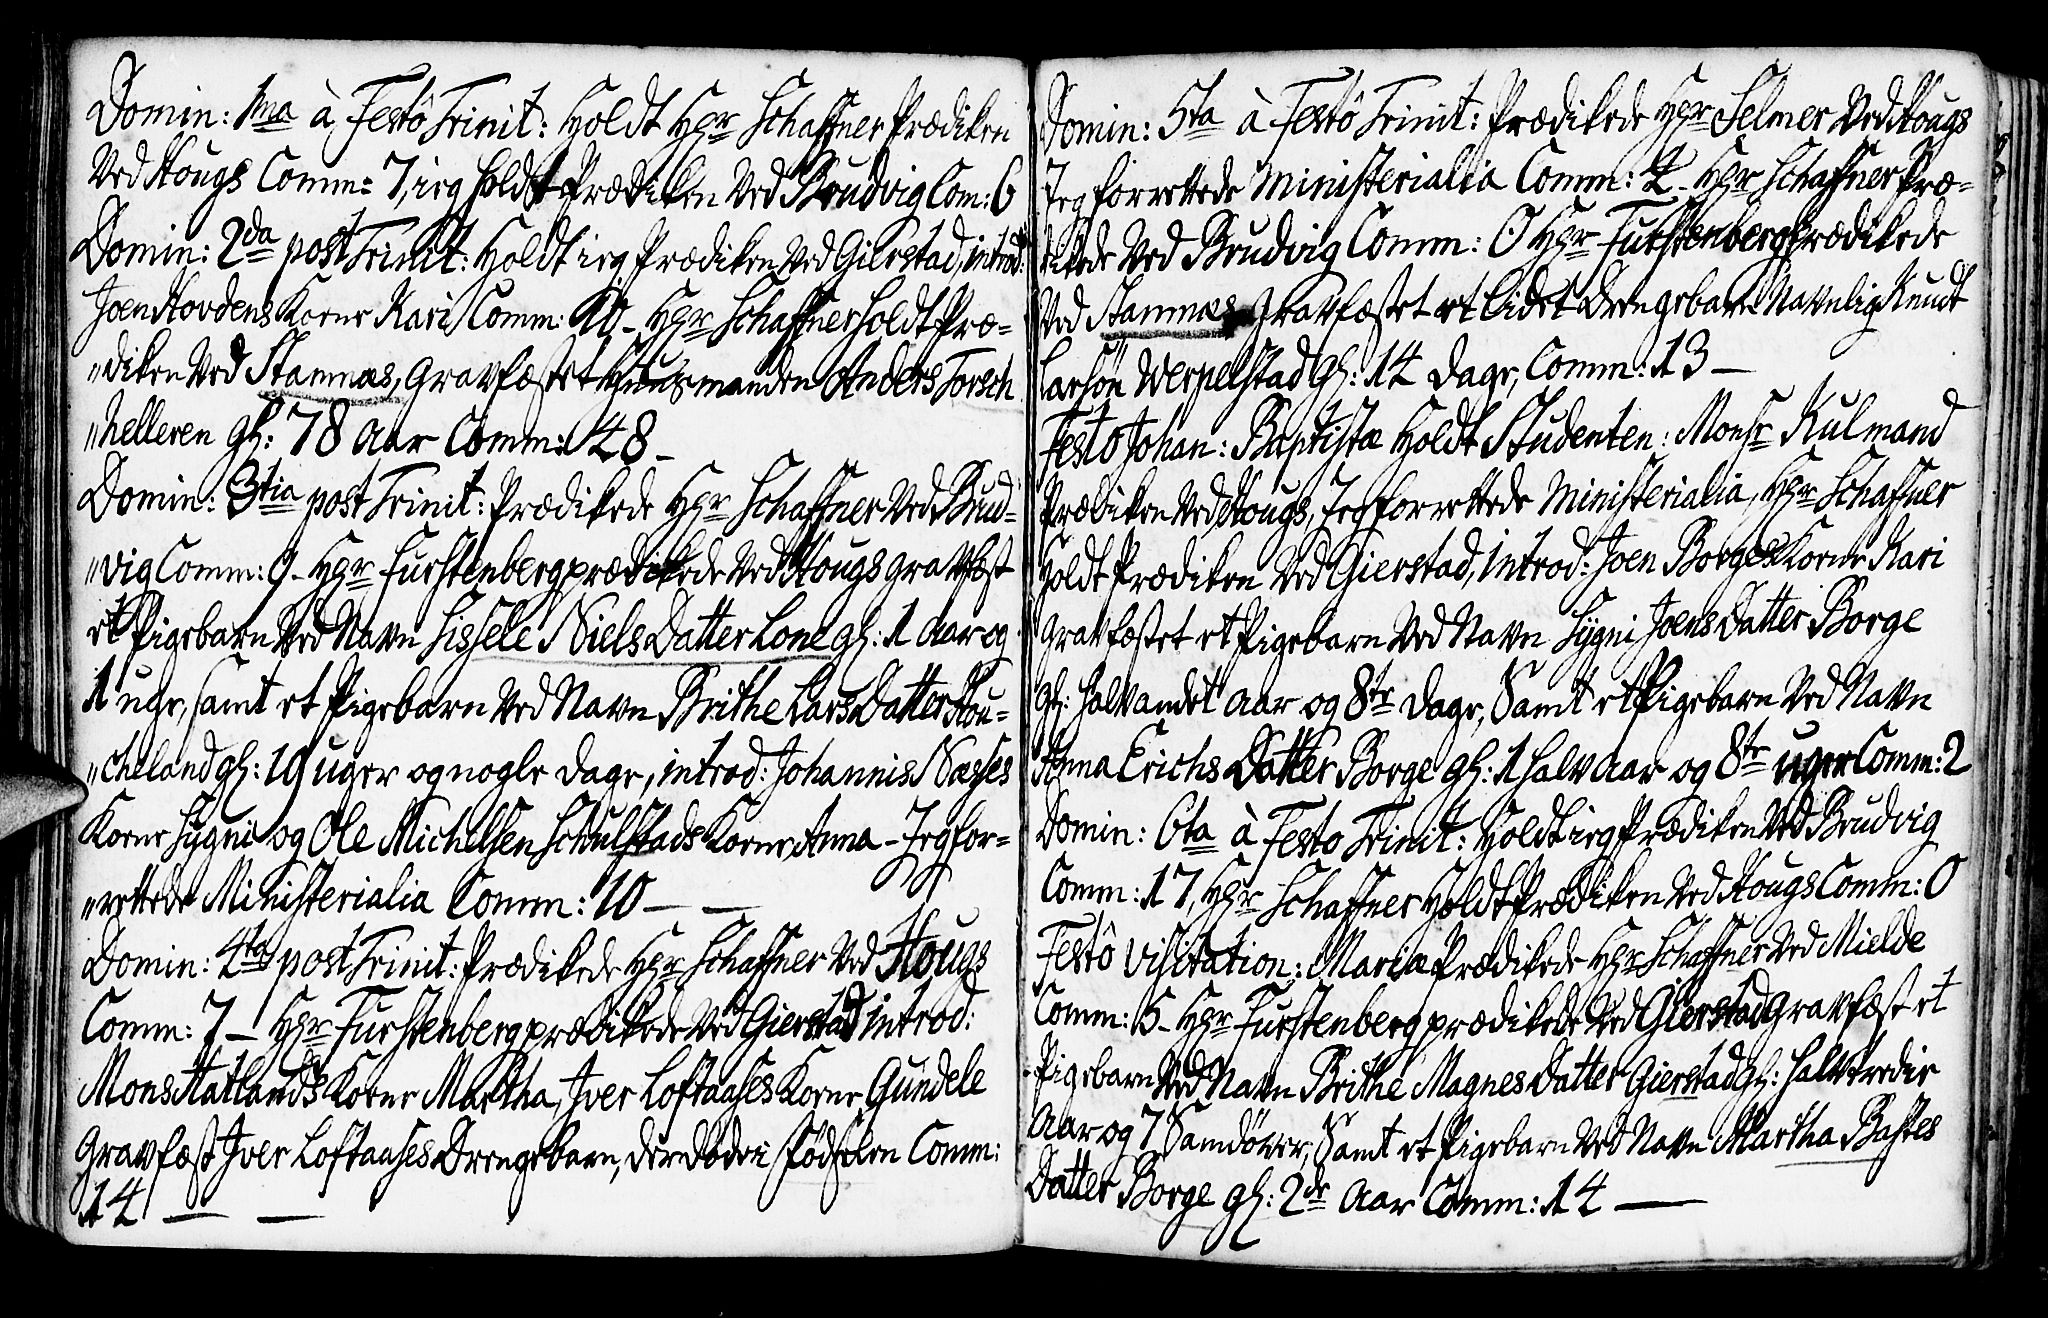 Domin: 1ma à Festô Trinit: Holdt Hgr Schaffner Prædiken
Ved Hougs Comm: 7, ieg holdt Prædiken Ved Brudvig Com: 6
Domin: 2da post Trinit: Holdt ieg Prædiken Ved Gierstad, introd:
Joen Hovdens Kone Kari Comm: 10 - Hgr Schaffner holdt Præ=
"diken Ved Stamnæs, Gravfæstet Huusmanden Anders Torsch
"helleren gl: 78 Aar Comm: 48 -
Domin: 3tia post Trinit: Prædikede Hgr Schaffner Ved Brud=
"vig Comm: 9 - Hgr Furstenberg prædikede Ved Hougs gravfæst
et Pigebarn Ved Navn Sissele Niels Datter Lone gl: 1 Aar og
1 uge, samt et Pigebarn Ved Navn Brithe Lars Datter Hou=
"cheland gl: 19 uger og nogle dage, introd: Johannis Næsses
Kone Sygni og Ole Michelsen Schulstads Kone Anna - Jeg for=
"rettede Ministerialia Comm: 10 - -
Domin: 4ta post Trinit: Prædikede Hgr Schaffner Ved Hougs
Comm: 7 - Hgr Furstenberg prædikede Ved Gierstad introd:
Mons Hatlands Kone Martha, Iver Loftaases Kone Gundele
Gravfæst Iver Loftaases Drengebarn, der døde i fødselen Comm:
14 - -
Domin: 5ta à Festô Trinit: Prædikede Hgr Selmer Ved Hougs
Jeg forrettede Ministerialia Comm: 4 - Hgr Schaffner Præ=
dikede Ved Brudvig Comm: 0 Hgr Furstenberg prædikede
Ved Stamnæs Gravfæstet et lidet Drengebarn Navnlig Knudt
Larsøn Werpelstad gl: 14 dage, Comm: 13 -
Festo Johan: Baptistæ Holdt Studenten: Monsr Kulmand
Prædiken Ved Hougs, Jeg forrettede Ministerialia, Hgr Schaffner
Holdt Prædiken Ved Gierstad, Introd: Joen Borges Kone Kari
Gravfæstet et Pigebarn Ved Navn Sygni Joens Datter Borge
gl: halvandet Aar og 8te dage, Samt et Pigebarn Ved Navn
Anna Erichs Datter Borge gl: 1 halv Aar og 8te uger Comm: 2
Domin: 6ta à Festo Trinit: Holdt ieg Prædiken Ved Brudvig
Comm: 17, Hgr Schaffner Holdt Prædiken Ved Hougs Comm: 0
Festô Visitation: Mariæ Prædikede Hgr Schaffner Ved Mielde
Comm: 5 - Hgr Furstenberg prædikede Ved Gierstad Gravfæst et
Pigebarn Ved Navn Brithe Magnes Datter Gierstad gl: halvtredie
Aar og 7 Samdøver, Samt et Pigebarn Ved Navn Martha Bastes
Datter Borge gl: 2de Aar Comm: 14 -